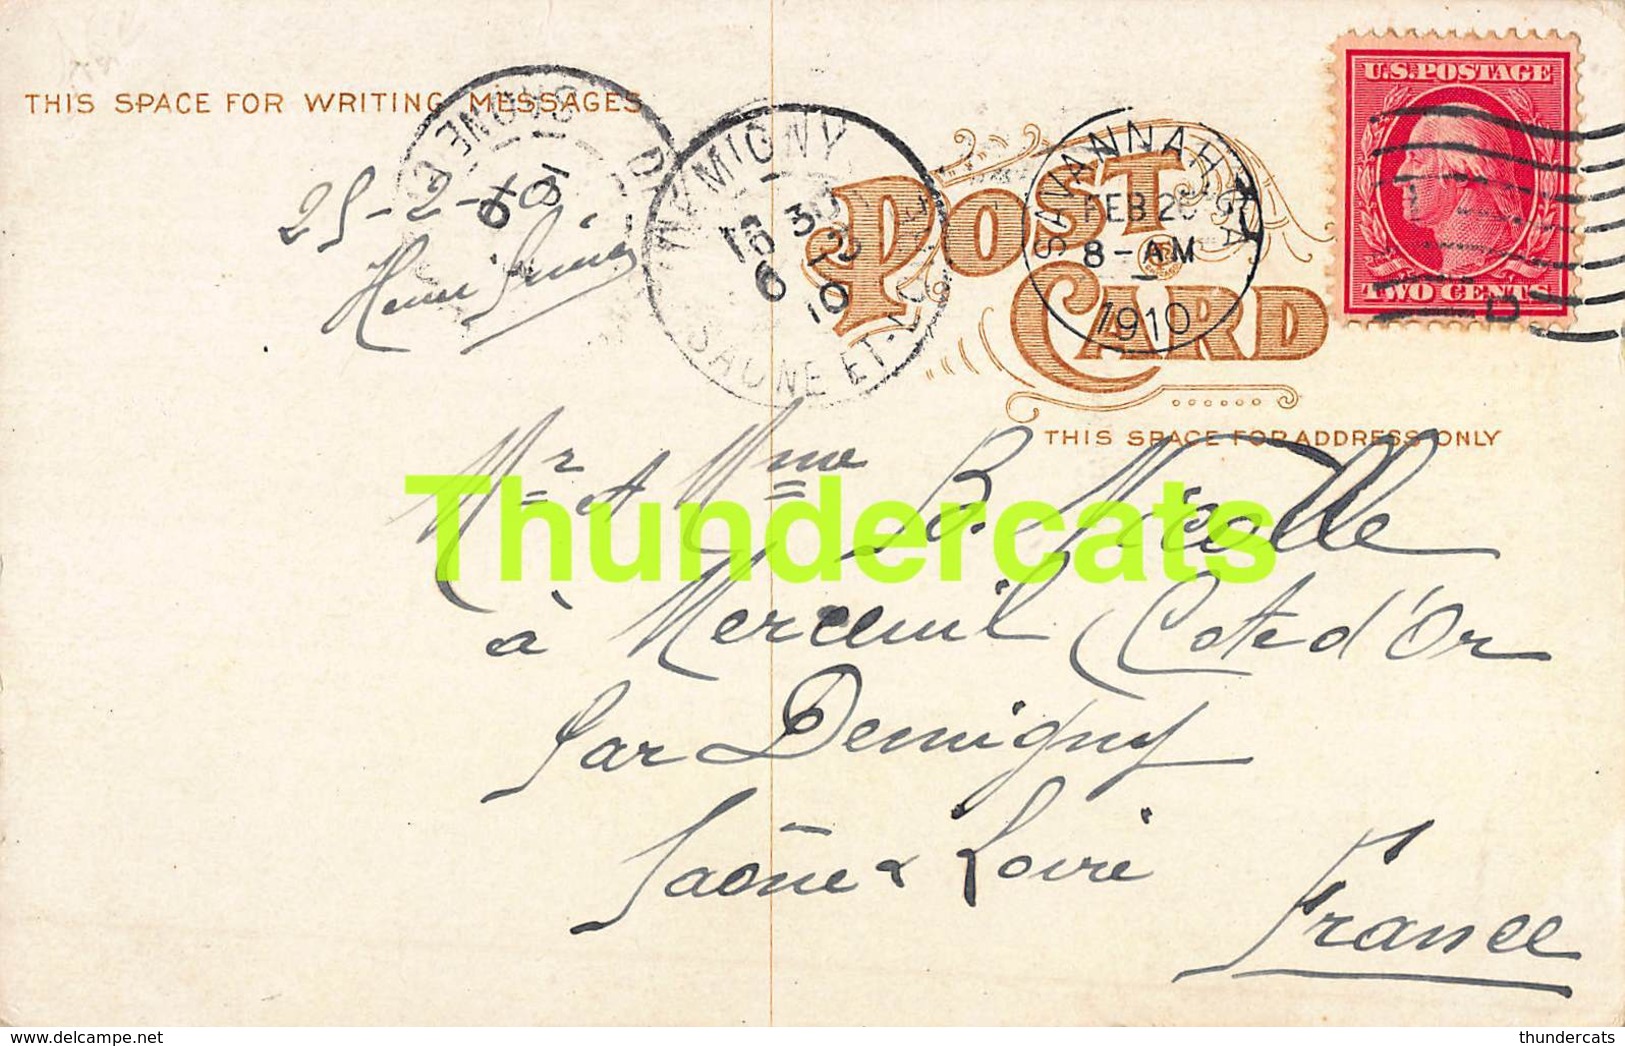 THIS SPACE FOR WRITING MESSAGES
25-2-10
SAONE
DEMIGNY
16 30
6 -3
10
SAONE ET-LOIRE
POST CARD
SAVANNAH, GA
FEB 26
8-AM
1910
U.S.POSTAGE
TWO CENTS
D
THIS SPACE FOR ADDRESS ONLY
Mr et Mme B. Nicolle
Thundercats
à Merceuil Cote d'Or
Par Demigny
Saône & Loire
France
thundercats